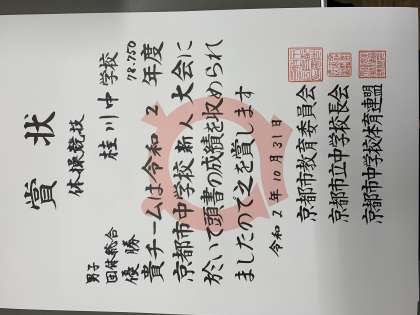 賞状
体操競技
男子
団体総合 桂川中学校
優勝 78.750
貴チームは令和2年度
京都市中学校新人大会に
於いて頭書の成績を収められ
ましたので之を賞します
令和2年10月31日
京都市教育委員会
京都市立中学校長会
京都市中学校体育連盟